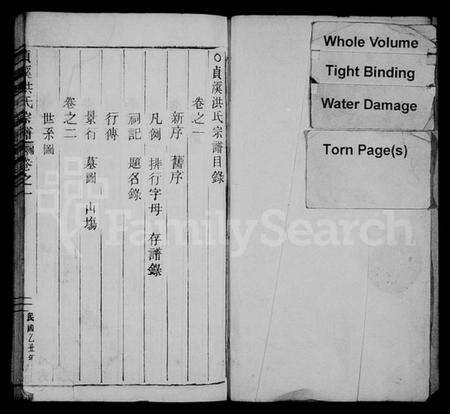 貞溪洪氏宗譜目錄
卷之一
新序 舊序
凡例 排行字母 存譜錄
祠記 題名錄
行傳
卷之二
景石 墓圖 山塲
世系圖
貞溪洪氏宗譜 卷之一
民國乙丑年
Whole Volume
Tight Binding
Water Damage
Torn Page(s)
FamilySearch